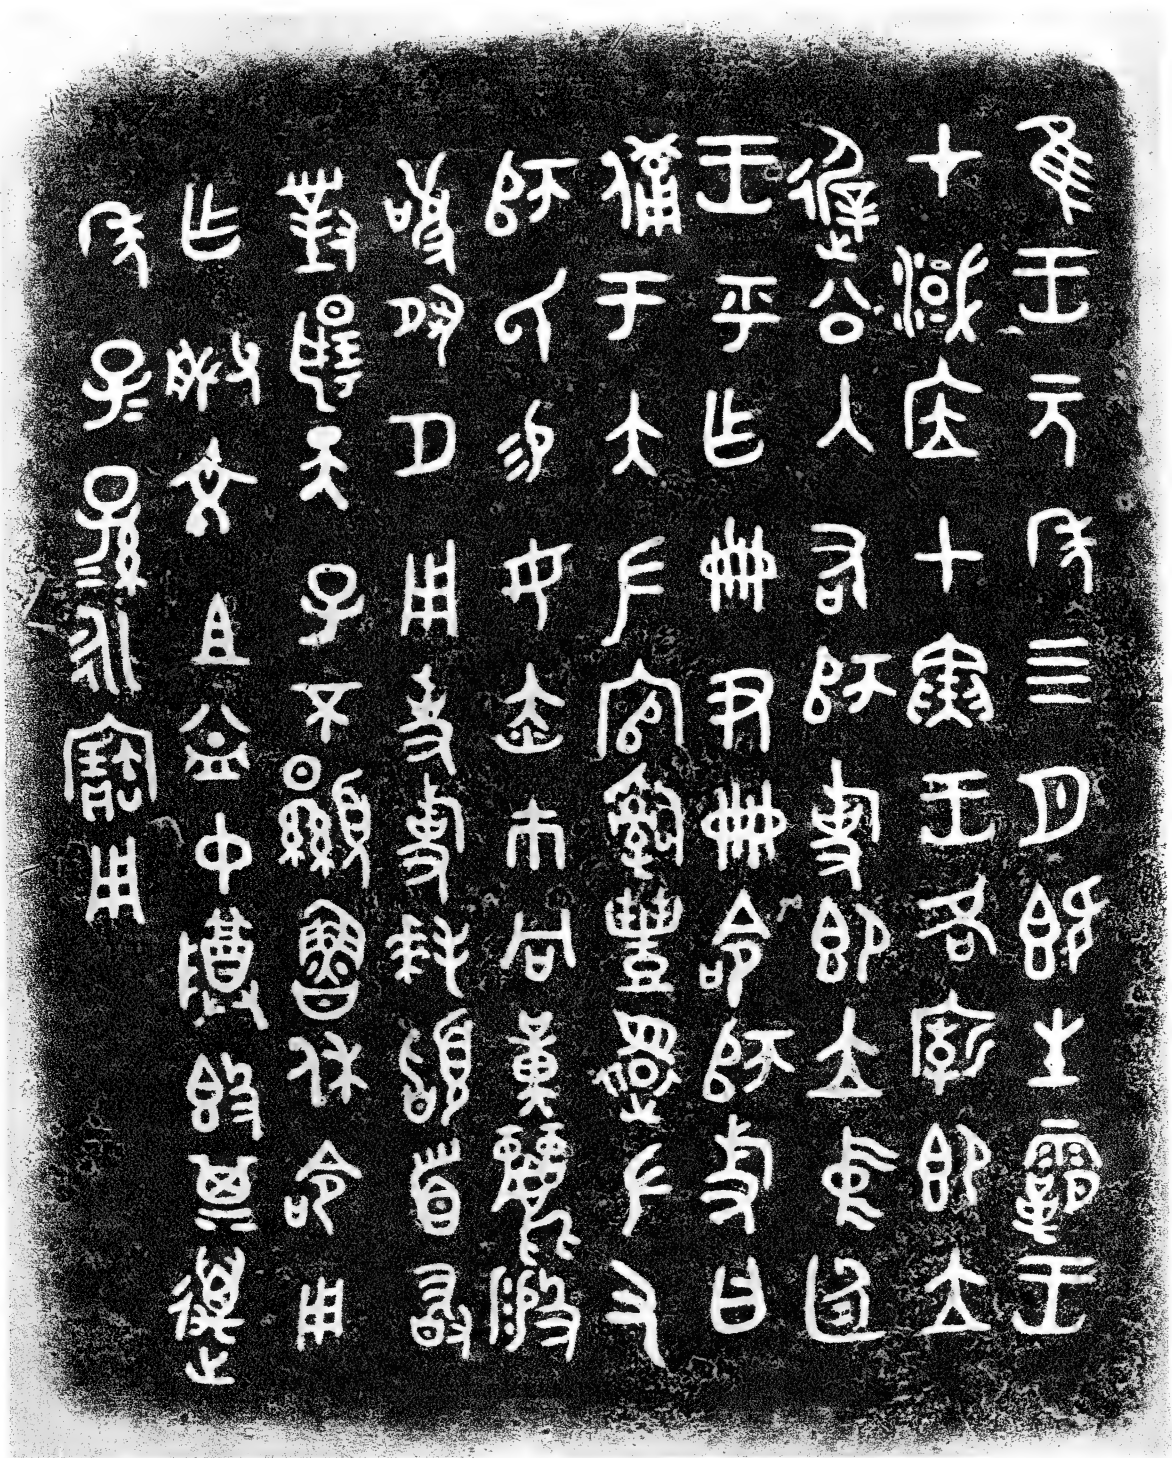 隹王元年四月既生霸王
才淢应甲寅王各廟即立
遟公入右師旋即立中廷
王乎乍冊尹冊命師旋曰
備于大ナ官𤔲豐還ナ又
師氏易女赤巿冋黃麗般
敬夙夕用事旋拜𩒨首敢
對揚天子不顯魯休命用
乍朕文且益中尊簋其邁
年子=孫=永寶用